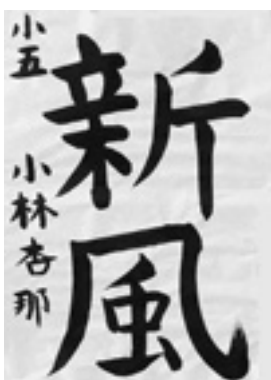 新風
小五 小林杏那